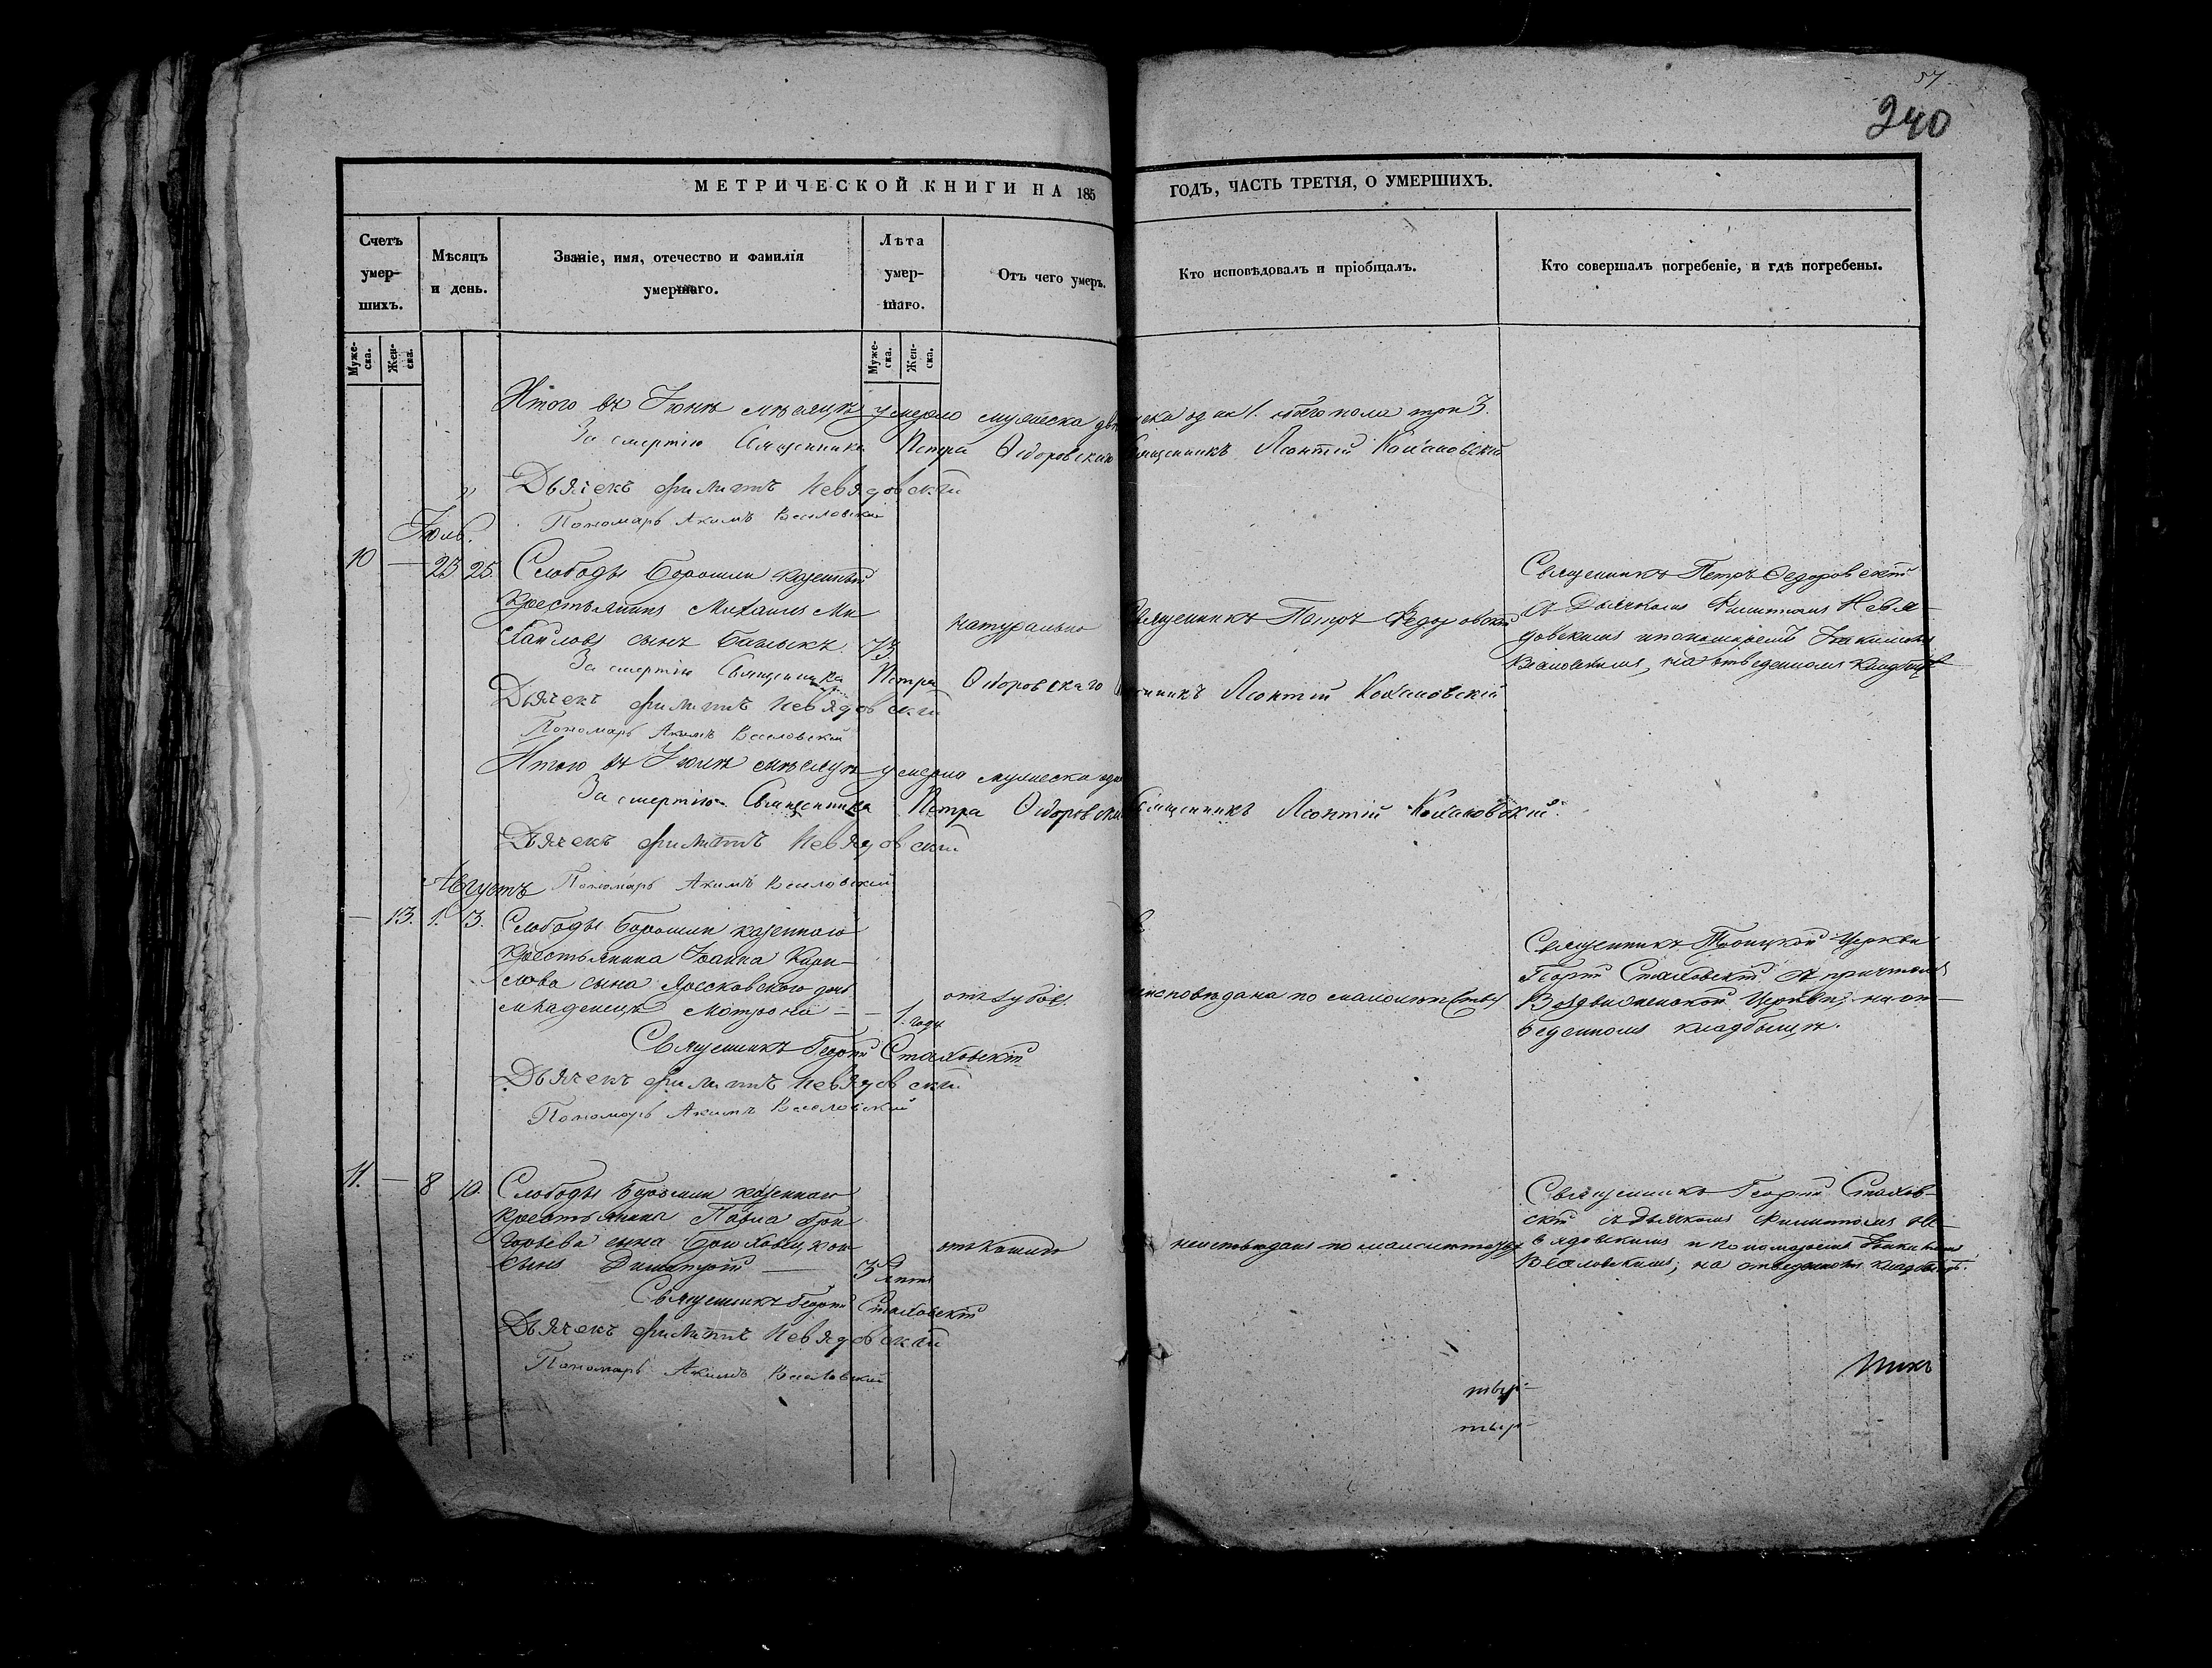 57
240
МЕТРИЧЕСКОЙ КНИГИ НА 185 ГОДЪ, ЧАСТЬ ТРЕТІЯ, О УМЕРШИХЪ.
Счетъ умершихъ.
Мѣсяцъ и день.
Званіе, имя, отечество и фамилія умершаго.
Лѣта умершаго.
Отъ чего умеръ.
Кто исповѣдовалъ и пріобщалъ.
Кто совершалъ погребеніе, и гдѣ погребены.
Мужеска.
Женска.
Мужеска.
Женска.
Итого въ Іюнѣ мѣсяцѣ умерло мужеска два женска одна 1. обоего пола три 3.
За смертію Священника Петра Ѳедоровскаго Священникъ Леонтій
Дьячекъ Филиппъ Невядовскій
Пономарь Акимъ Веселовскій
Іюль.
10 — 23 25.
Слободы Боромли казенный
крестьянинъ Михаилъ Ми-
хайловъ сынъ
73.
натурально
Священникъ Петръ Федоровскій
Священникъ Петръ Ѳедоровскій
съ Дьячкомъ Филиппомъ Невя-
довскимъ и пономаремъ
Веселовскимъ, на отведенномъ кладбищѣ
За смертію Священника Петра Ѳедоровскаго Священникъ Леонтій
Дьячекъ Филиппъ Невядовскій
Пономарь Акимъ Веселовскій
Итого въ Іюлѣ мѣсяцѣ умерло мужеска одинъ
За смертію Священника Петра Ѳедоровскаго Священникъ Леонтій
Дьячекъ Филиппъ Невядовскій
Августъ
Пономарь Акимъ Веселовскій
— 13. 1. 3.
Слободы Боромли казеннаго
крестьянина Іоанна Кири-
лова сына дочь
младенецъ Мотрона —
1. годъ
отъ зубовъ
неисповѣдана по малолѣтству
Священникъ Троицкой Церкви
Георгій Стаховскій съ причтомъ
Воздвиженской Церкви, на от-
веденномъ кладбищѣ.
Священникъ Георгій Стаховскій
Дьячекъ Филиппъ Невядовскій
Пономарь Акимъ Веселовскій
11. — 8 10.
Слободы Боромли казеннаго
крестьянина Павла Гри-
горьева сына
сынъ Димитрій —
3 лѣтъ
отъ кашля
неисповѣданъ по малолѣтству
Священникъ Георгій Стахов-
скій съ дьячкомъ Филиппомъ Не-
вядовскимъ и пономаремъ
Веселовскимъ, на отведенномъ кладбищѣ.
Священникъ Георгій Стаховскій
Дьячекъ Филиппъ Невядовскій
Пономарь Акимъ Веселовскій